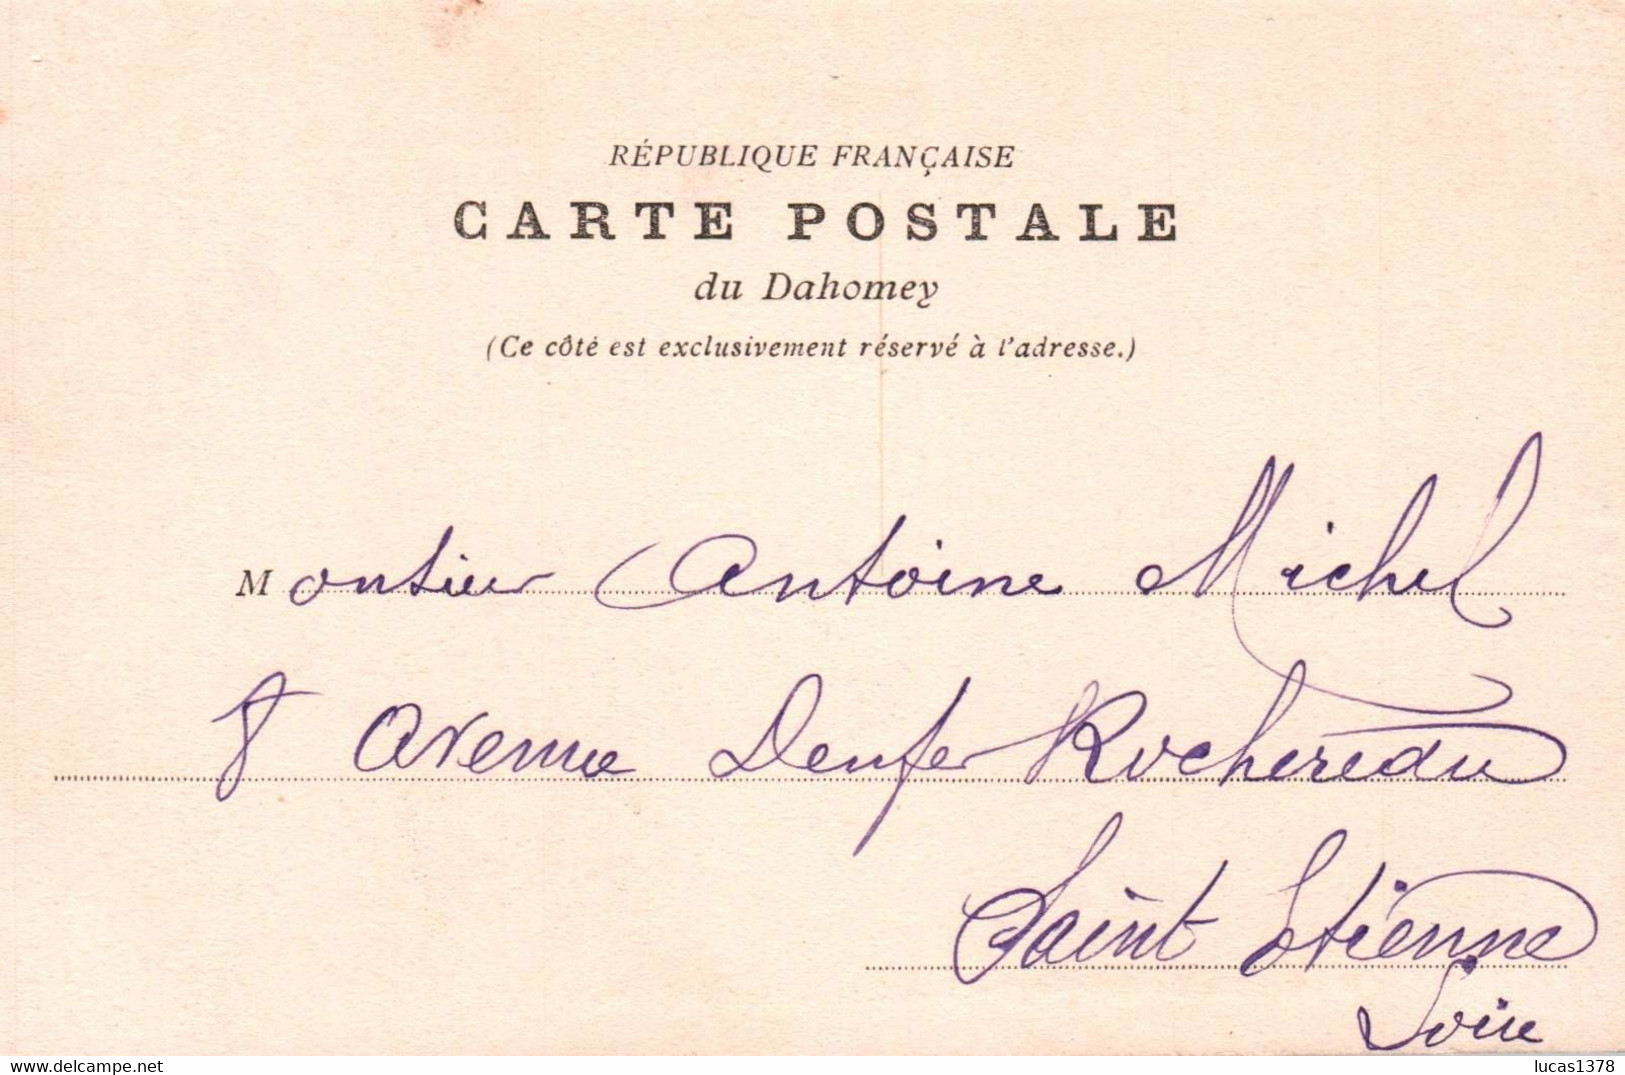 RÉPUBLIQUE FRANÇAISE
CARTE POSTALE
du Dahomey
(Ce côté est exclusivement réservé à l'adresse.)
Monsieur Antoine Michel
8 Avenue Denfer Rochereau
Saint Etienne
Loire
delcampe.net
lucas1378